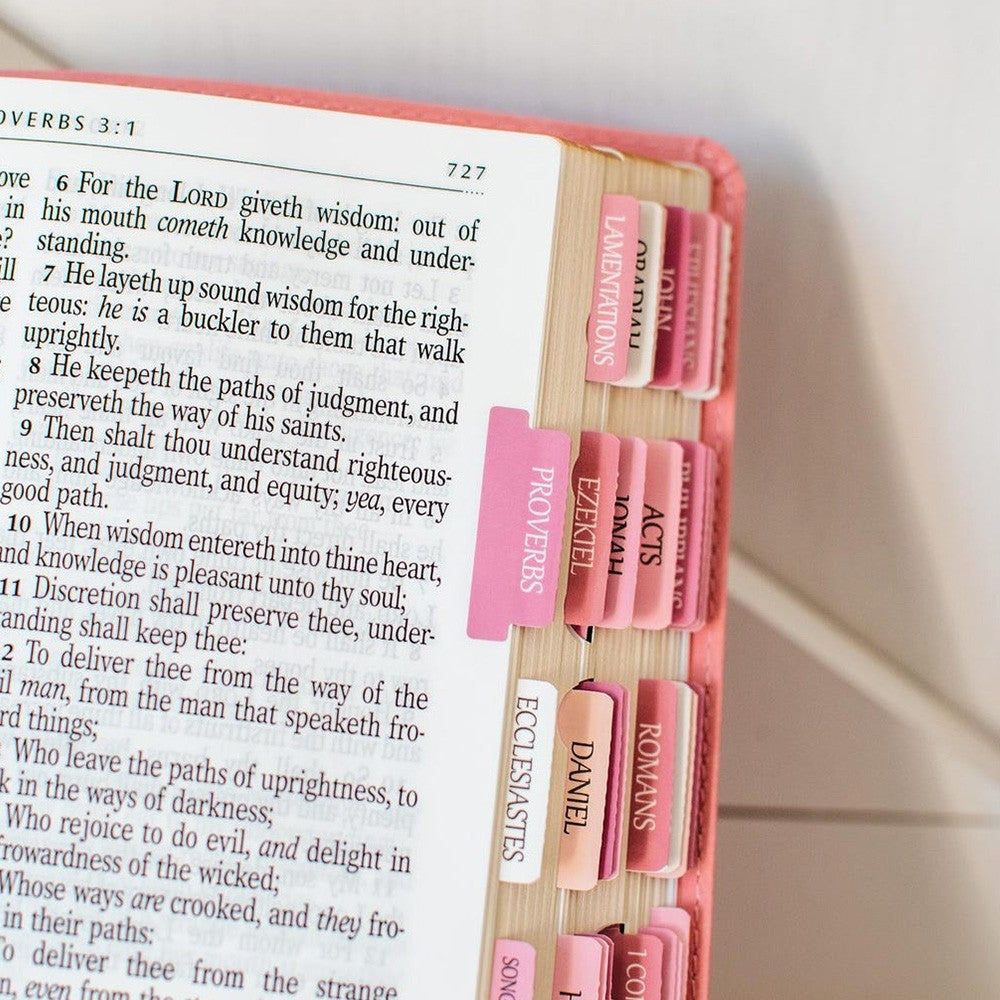 OVERBS 3:1
727
ove
in
e?
ill
e
6 For the LORD giveth wisdom: out of
his mouth cometh knowledge and under-
standing.
7 He layeth up sound wisdom for the righ-
teous: he is a buckler to them that walk
uprightly.
8 He keepeth the paths of judgment, and
preserveth the way of his saints.
9 Then shalt thou understand righteous-
ness, and judgment, and equity; yea, every
good path.
10 When wisdom entereth into thine heart,
and knowledge is pleasant unto thy soul;
11 Discretion shall preserve thee, under-
tanding shall keep thee:
2 To deliver thee from the way of the
il man, from the man that speaketh fro-
rd things;
Who leave the paths of uprightness, to
k in the ways of darkness;
Who rejoice to do evil, and delight in
frowardness of the wicked;
Whose ways are crooked, and they fro-
in their paths:
To deliver thee from the strange
n, even from the
LAMENTATIONS
OBADIAH
JOHN
EPHESIANS
PROVERBS
EZEKIEL
JONAH
ACTS
PHILIPPIANS
ECCLESIASTES
DANIEL
ROMANS
SONG
1 CO